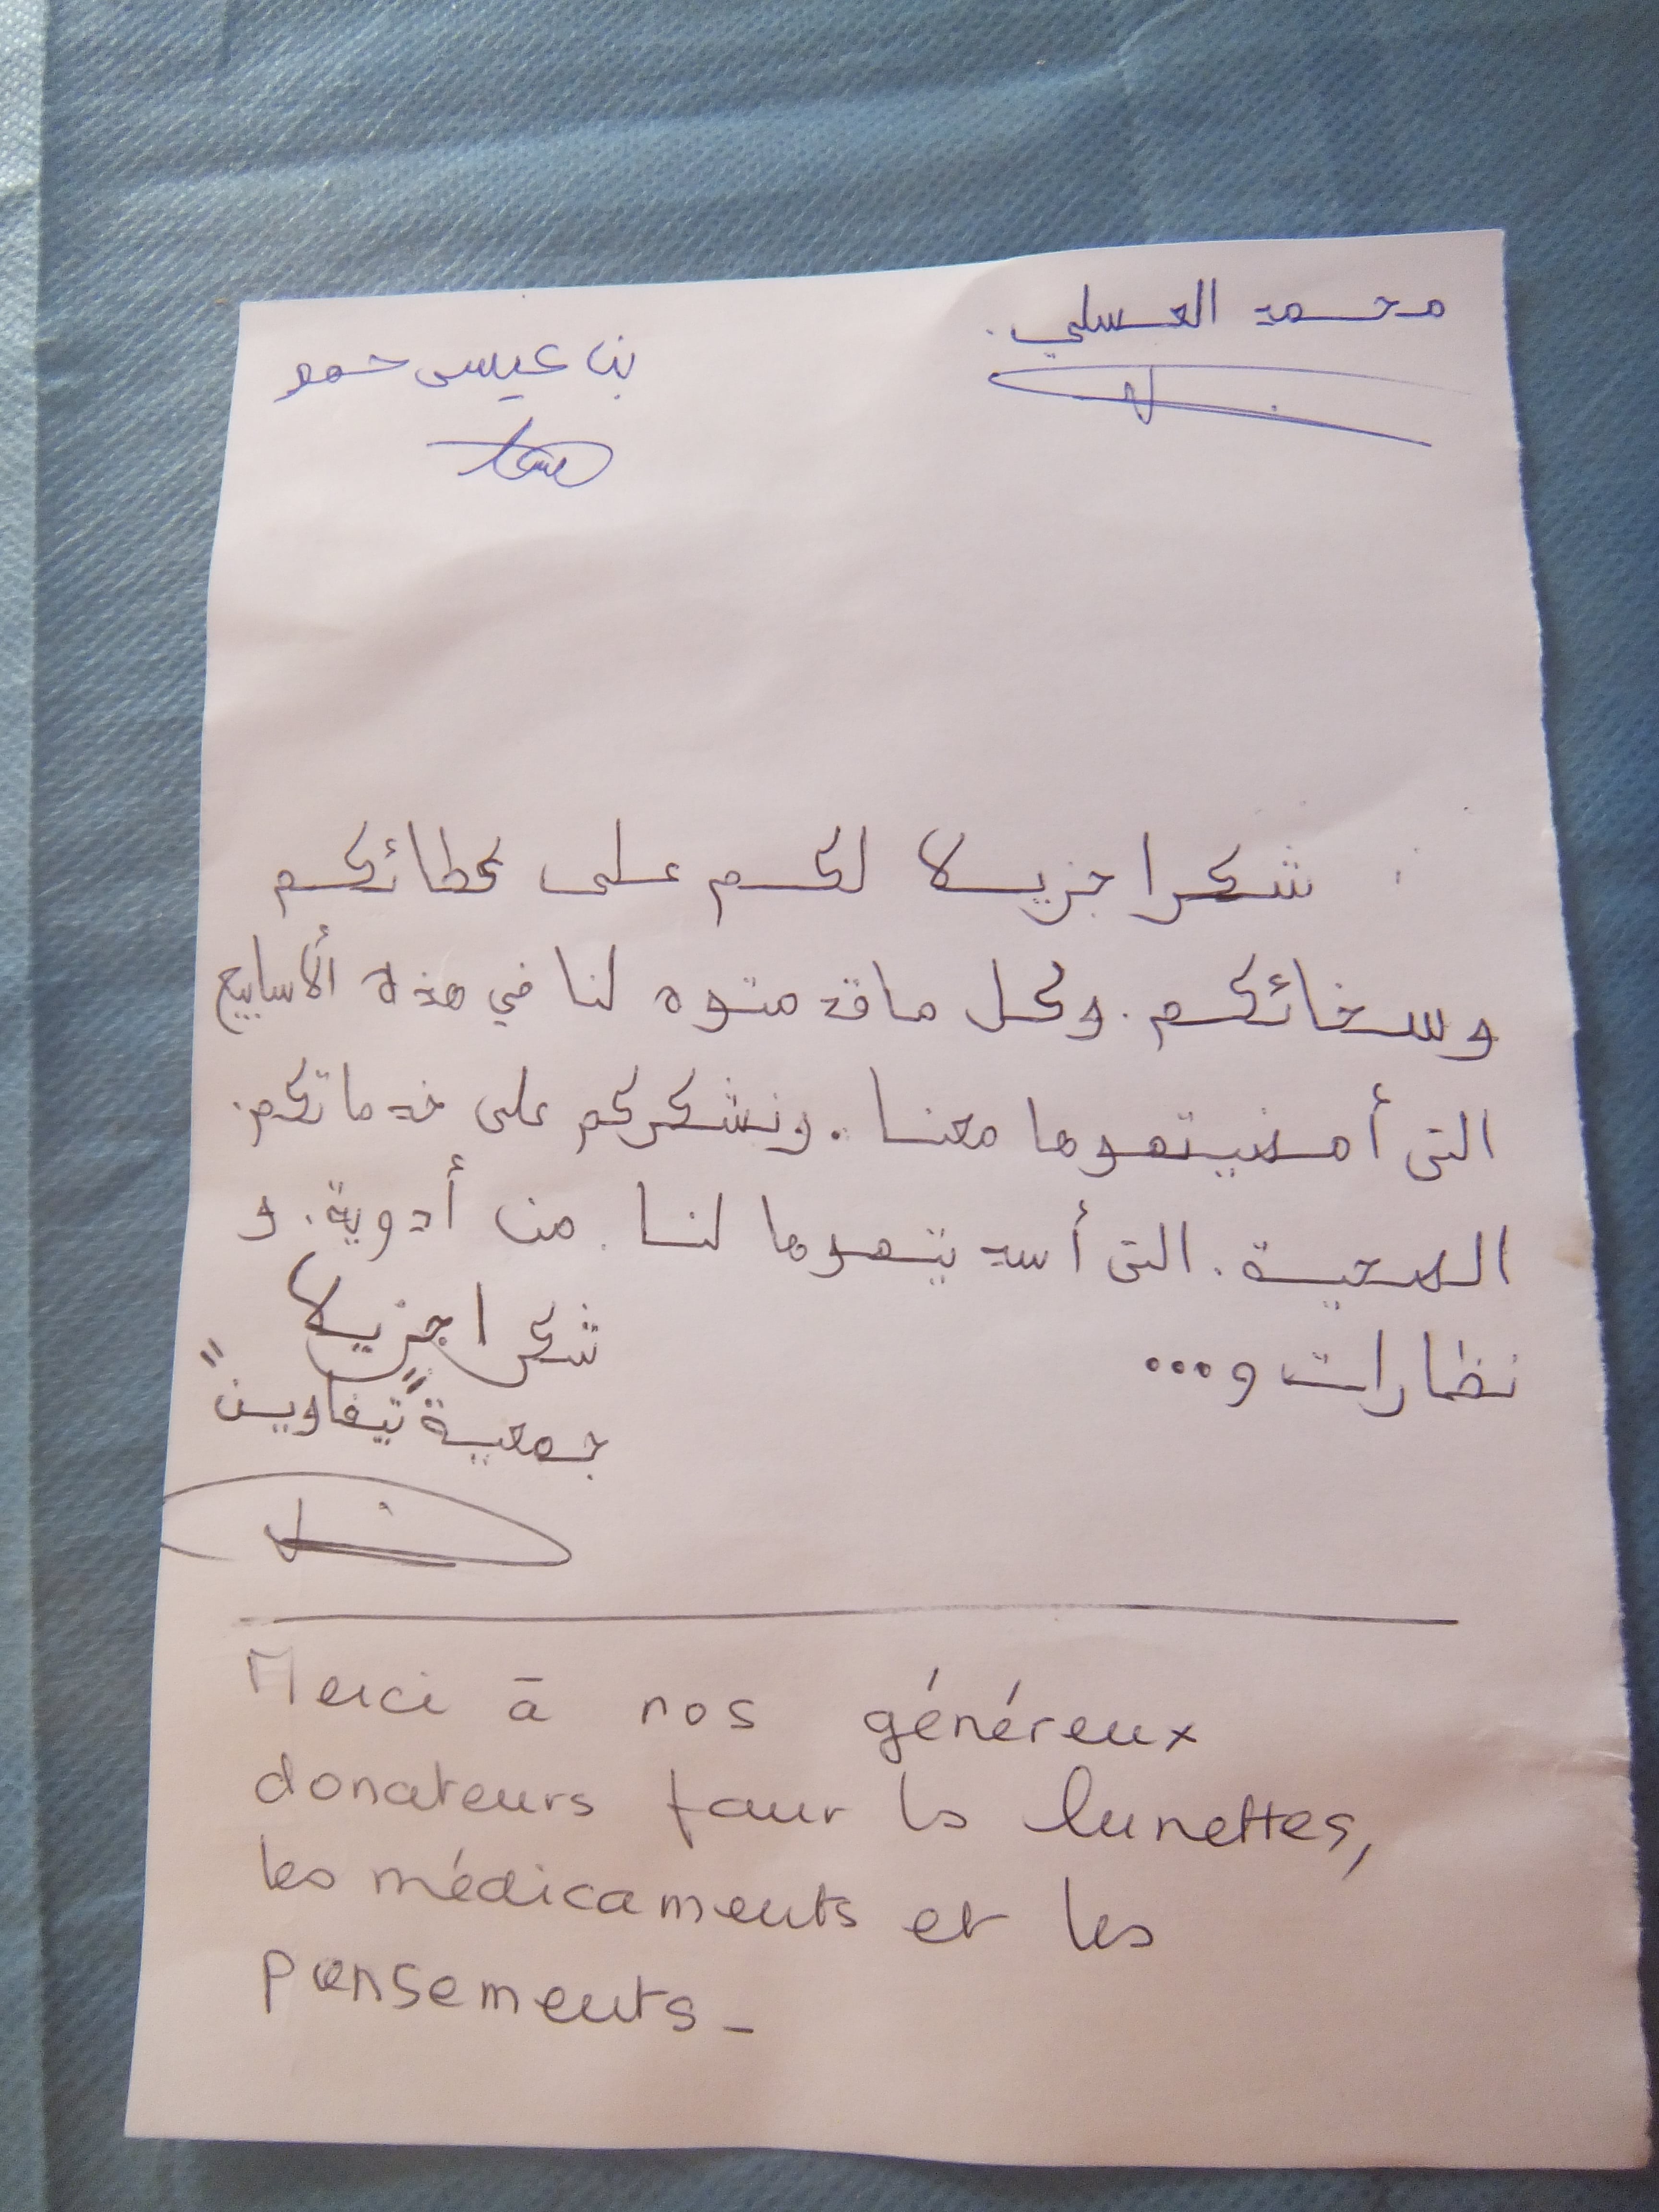 محمد العسلي.
بن عيسى حمو
شكرا جزيلا لكم على عطائكم
وسخائكم. وكل ما قدمتوه لنا في هذه الأسابيع
التي أمضيتموها معنا. ونشكركم على خدماتكم.
الصحية. التي أسديتموها لنا. من أدوية. و
نظارات و...
شكرا جزيلا
جمعية "تيفاوين"
Merci à nos généreux
donateurs pour les lunettes,
les médicaments et les
pansements_